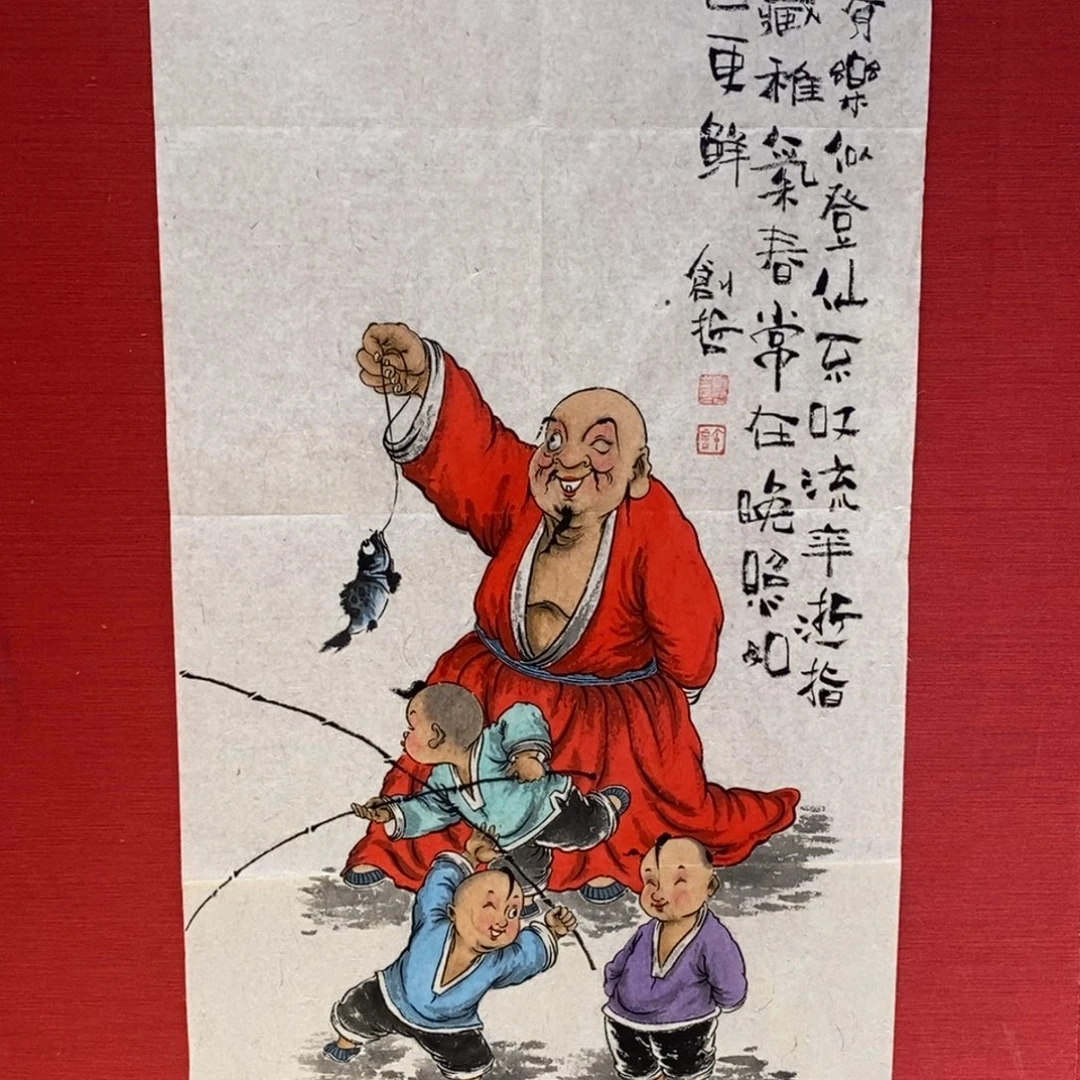 有樂似登仙不叹流年逝指
藏稚氣春常在晚照如
更鮮
創哲